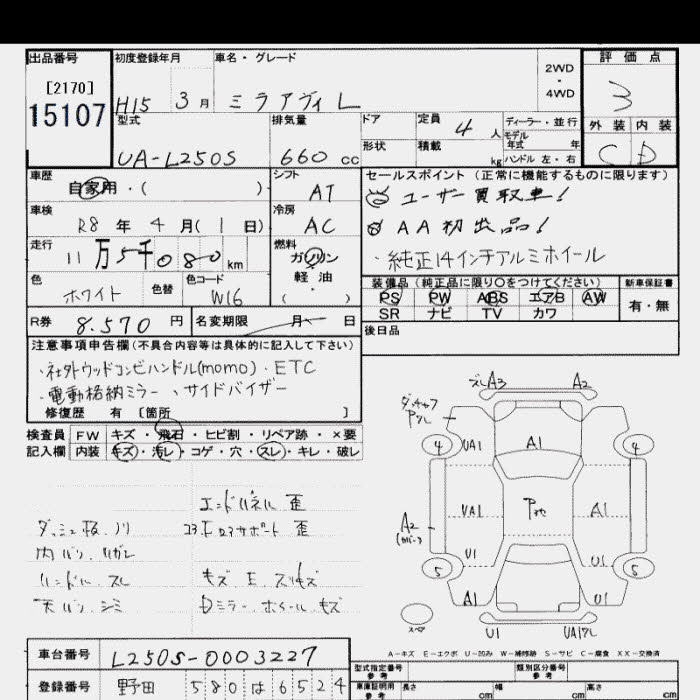 出品番号 初度登録年月 車名・グレード 2WD・4WD 評価点
[2170]
15107
H15 3月 ミラアヴィ L 3
型式 排気量 ドア 定員 4人 ディーラー・並行 外装 内装
形状 積載 kg モデル年式 年 ハンドル 左・右
UA-L250S 660cc C D
車歴 シフト セールスポイント (正常に機能するものに限ります)
自家用・( ) AT ユーザー買取車!
車検 冷房 AA初出品!
R8年4月(1日) AC ・純正14インチアルミホイール
走行 燃料
11万5千080km ガソリン
軽油
( )
色 色替 色コード 装備品(純正品に限り○をつけてください) 新車保証書
ホワイト W16 PS PW ABS エアB AW 有・無
SR ナビ TV カワ
R券 8.570円 名変期限 月 日 後日品
注意事項申告欄(不具合内容等は具体的に記入して下さい)
・社外ウッドコンビハンドル(momo)・ETC
・電動格納ミラー、サイドバイザー
修復歴 有 [箇所 ]
検査員 FW キズ・飛石・ヒビ割・リペア跡・×要
記入欄 内装 キズ・汚レ・コゲ・穴・スレ・キレ・破レ
エンドパネル 歪
ダッシュ板、ノリ コアE ロアサポート 歪
内バリ、ハガレ
ハンドル、スレ キズ E、スリキズ
天バリ、シミ Dミラー、ホイール、キズ
ズレA3 A2
4 UA1 A1 4
UA1 A1
A2
U1 U1
5 5
A1 U1
スペア
U1
A-キズ E-エクボ U-凹み W-補修跡 S-サビ C-腐食 XX-交換済
車台番号 L250S-0003227
型式指定番号 参考 類別区分番号 参考
登録番号 野田 580 は 6524
車庫証明用 参考 長さ cm 幅 cm 高さ cm